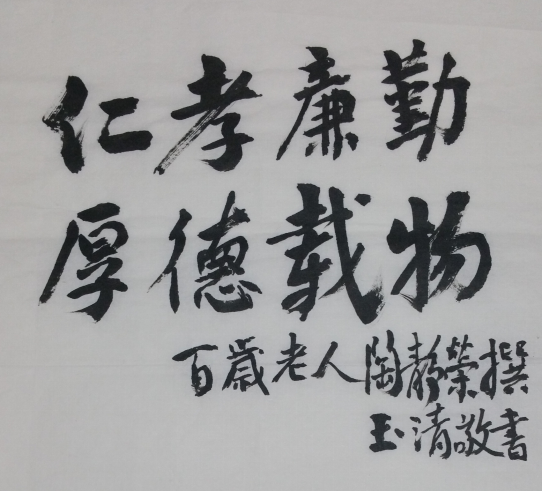 仁孝廉勤
厚德载物
百歲老人陶靜榮撰
玉清敬書